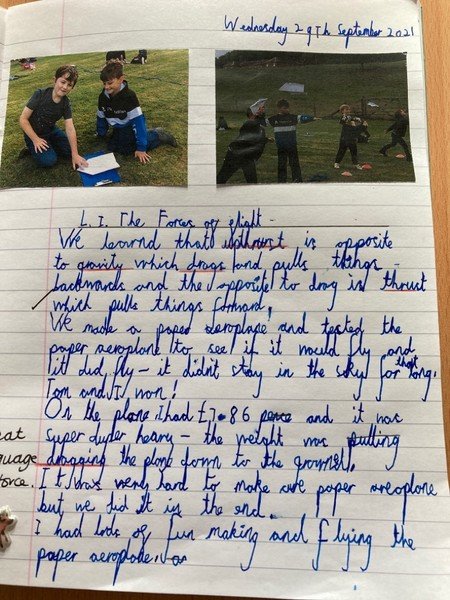 Wednesday 29th September 2021
L.I. The Forces of flight -
We learnd that upthrust is opposite
to gravity which drags and pulls things -
backwards and the opposite to drag is thrust
which pulls things forward.
We made a paper aeroplane and tested the
paper aeroplane to see if it would fly and
it did fly - it didn't stay in the sky for that long.
Tom and I won!
On the plane I had £7.86 pence and it was
super duper heavy - the weight was pulling
dragging the plane down to the ground.
It was very hard to make are paper areoplane
but we did it in the end.
I had lots of fun making and flying the
paper aeroplane.